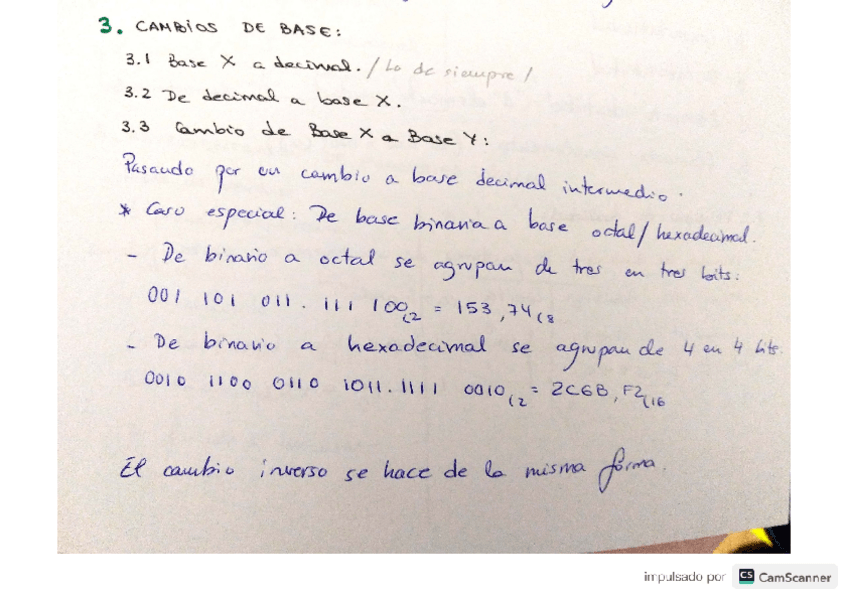 3. CAMBIOS DE BASE:
3.1 Base X a decimal. / Lo de siempre /
3.2 De decimal a base X.
3.3 Cambio de Base X a Base Y:
Pasando por un cambio a base decimal intermedio.
* Caso especial: De base binaria a base octal/hexadecimal.
- De binario a octal se agrupan de tres en tres bits:
001 101 011. 111 100(2 = 153,74(8
- De binario a hexadecimal se agrupan de 4 en 4 bits.
0010 1100 0110 1011.1111 0010(2 = 2C6B,F2(16
El cambio inverso se hace de la misma forma.
impulsado por CS CamScanner